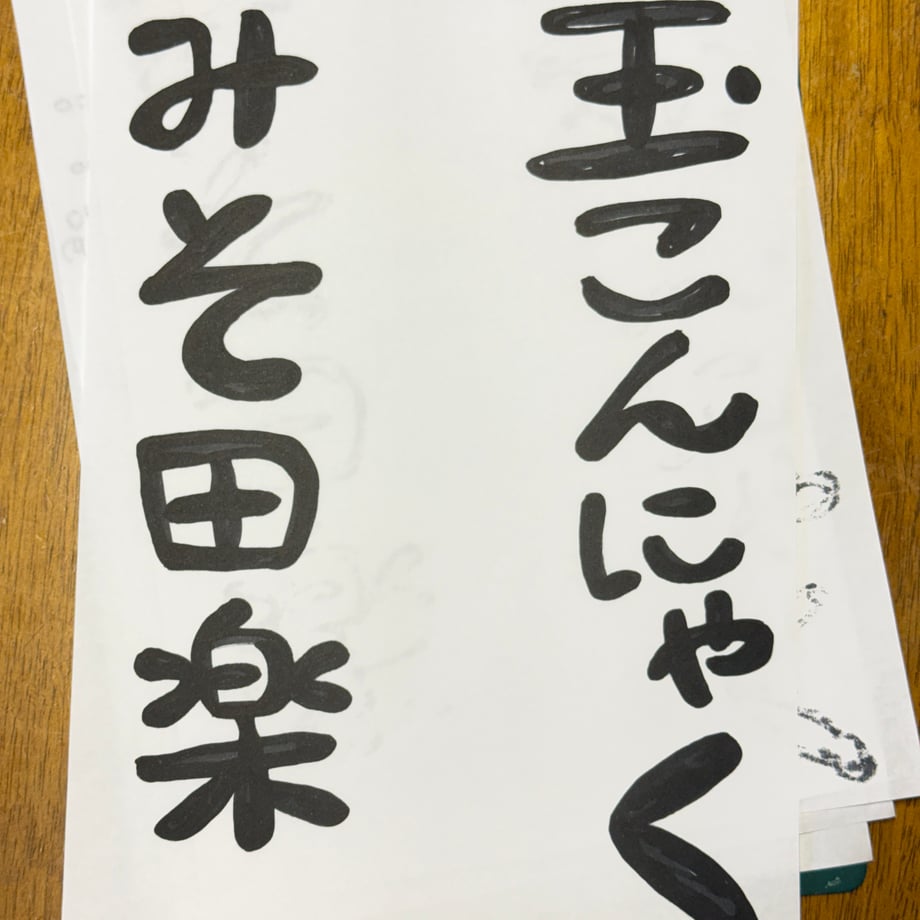 玉こんにゃく
みそ田楽